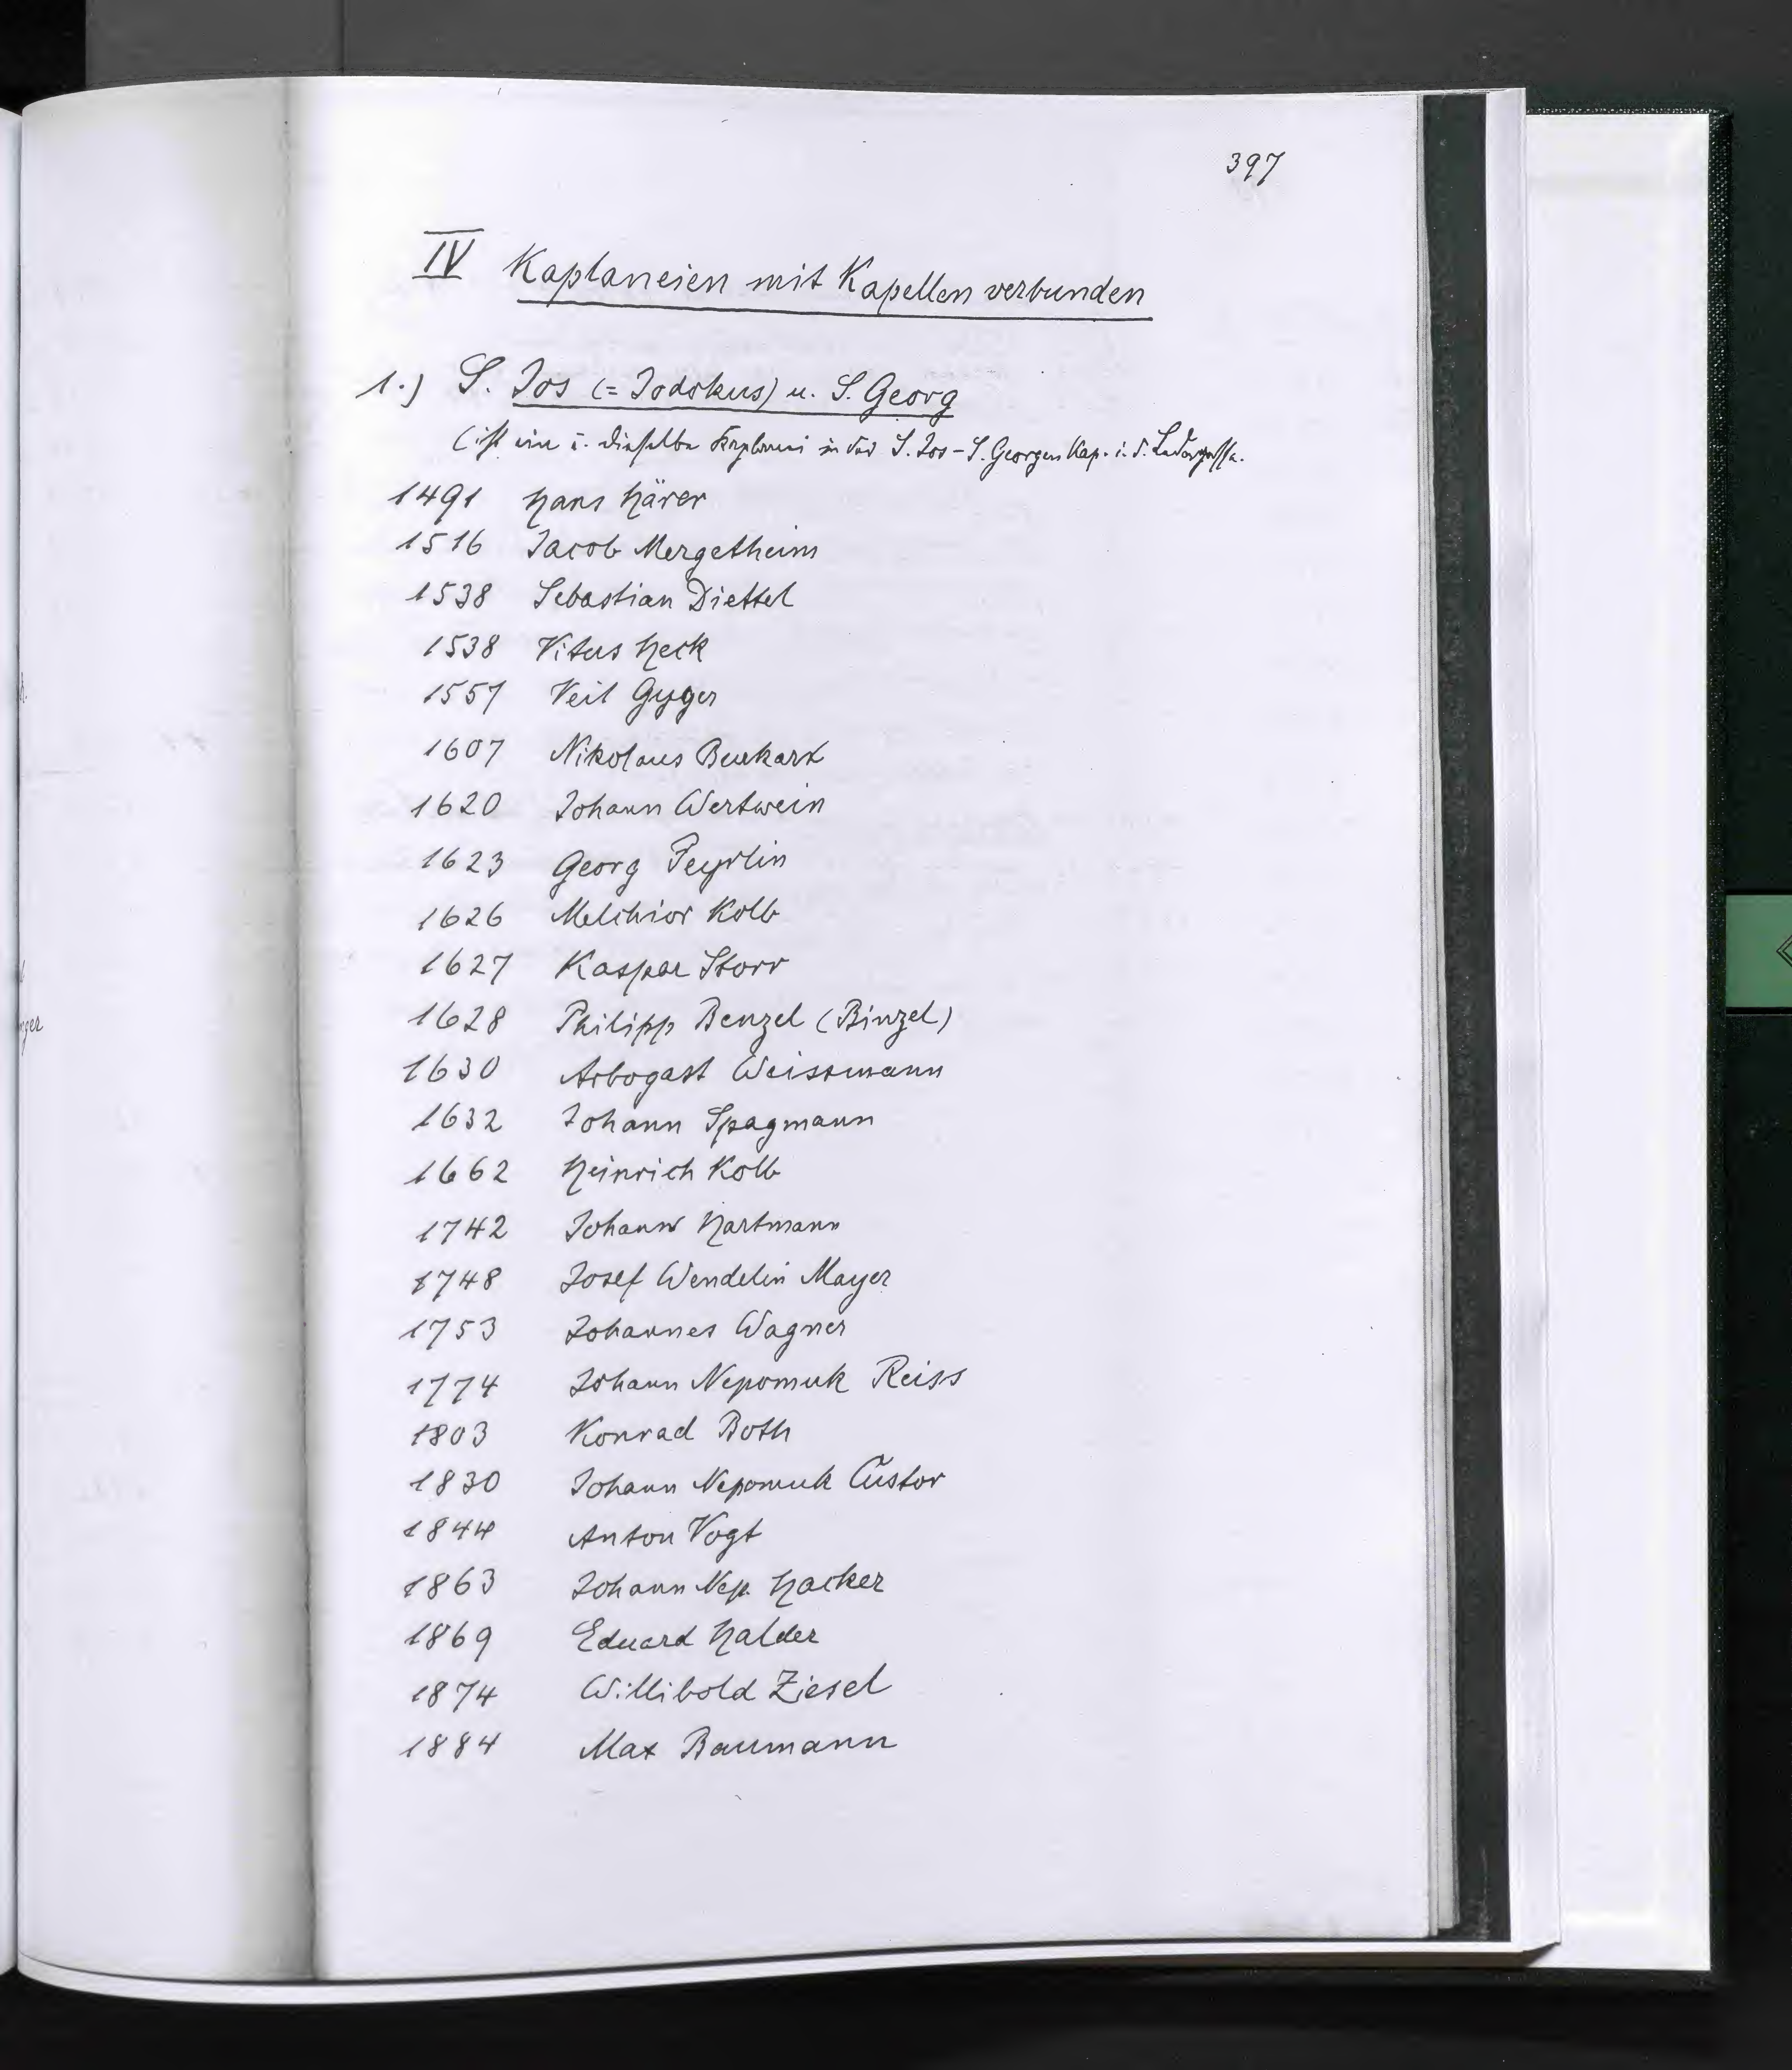 397
IV Kaplaneien mit Kapellen verbunden
1.) S. Jos (= Jodokus) u. S. Georg
(ist eine u. dieselbe Kaplanei in der S. Jos - S. Georgen Kap. i. d. Ledergasse.
1491 Hans Härer
1516 Jacob Mergetheim
1538 Sebastian Diettel
1538 Vitus Heck
1557 Veit Gyger
1607 Nikolaus Burkart
1620 Johann Wertwein
1623 Georg Feyrlin
1626 Melchior Kolb
1627 Kaspar Storr
1628 Philipp Benzel (Binzel)
1630 Arbogast Weissmann
1632 Johann Spagmann
1662 Heinrich Kolb
1742 Johann Hartmann
1748 Josef Wendelin Mayer
1753 Johannes Wagner
1774 Johann Nepomuk Reiss
1803 Konrad Both
1830 Johann Nepomuk Custor
1844 Anton Vogt
1863 Johann Nep. Hacker
1869 Eduard Halder
1874 Willibold Ziesel
1884 Max Baumann